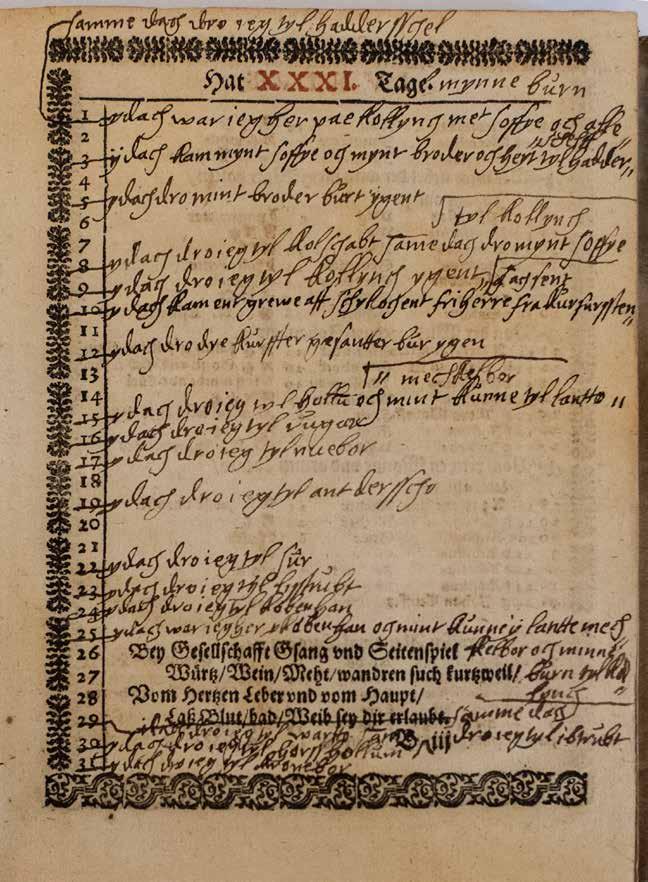 samme dach dro ieg tyl haddersschel
Hat XXXI. Tage. mynne burn
1 ydach war iegher pae kollyng met soffye och alle
2
3 ydach kam mynt soffye och mynt broder och hert tyl hadder„
4
5 ydach dro mint broder burt ygent
6 tyl kollynch
7
8 ydach dro ieg tyl kolschabt same dach dro mynt soffye
9 ydach dro ieg tyl kollynch ygent „ sachsent
10 ydach kam ent grewe aff och ent friherre fra kurfursten„
11
12 ydach dro dye kurffster gesantter bur ygen
13 „ mechelbor
14
15 ydach dro ieg tyl och mint kunne tyl lantto„
16 ydach dro ieg tyl rugar
17 ydach dro ieg tyl nuebor
18
19 ydach dro ieg tyl ant dersscho
20
21
22 ydach dro ieg tyl sur
23 ydach dro ieg tyl
24 ydach dro ieg tyl kobenhan
25 ydach war iegher y kobenhan och mint kunne y lantte mech„
26 Bey Gesellschafft Gsang vnd Seitenspiel kelbor och minne
27 Würtz/Wein/Meht/wandren such kurtzweil/ burn tyl kol„
28 Vom Hertzen Leber vnd vom Haupt/ lynch
29 Laß Blut/bad/Weib sey dir erlaubt. samme dach
30 ydach dro ieg tyl B iij dro ieg tyl ibstrubt
31 ydach dro ieg tyl kronebor